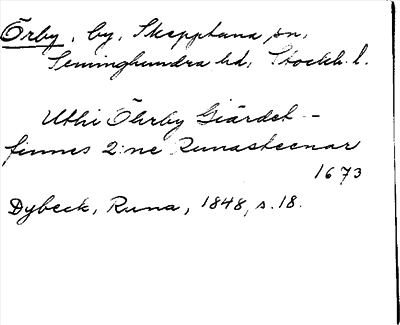 Örby, by, Skepptuna sn,
Seminghundra hd, Stockh. l.
Uthi Öhrby Giärdet –
finnes 2:ne Runasteenar
1673
Dybeck, Runa, 1848, s. 18.